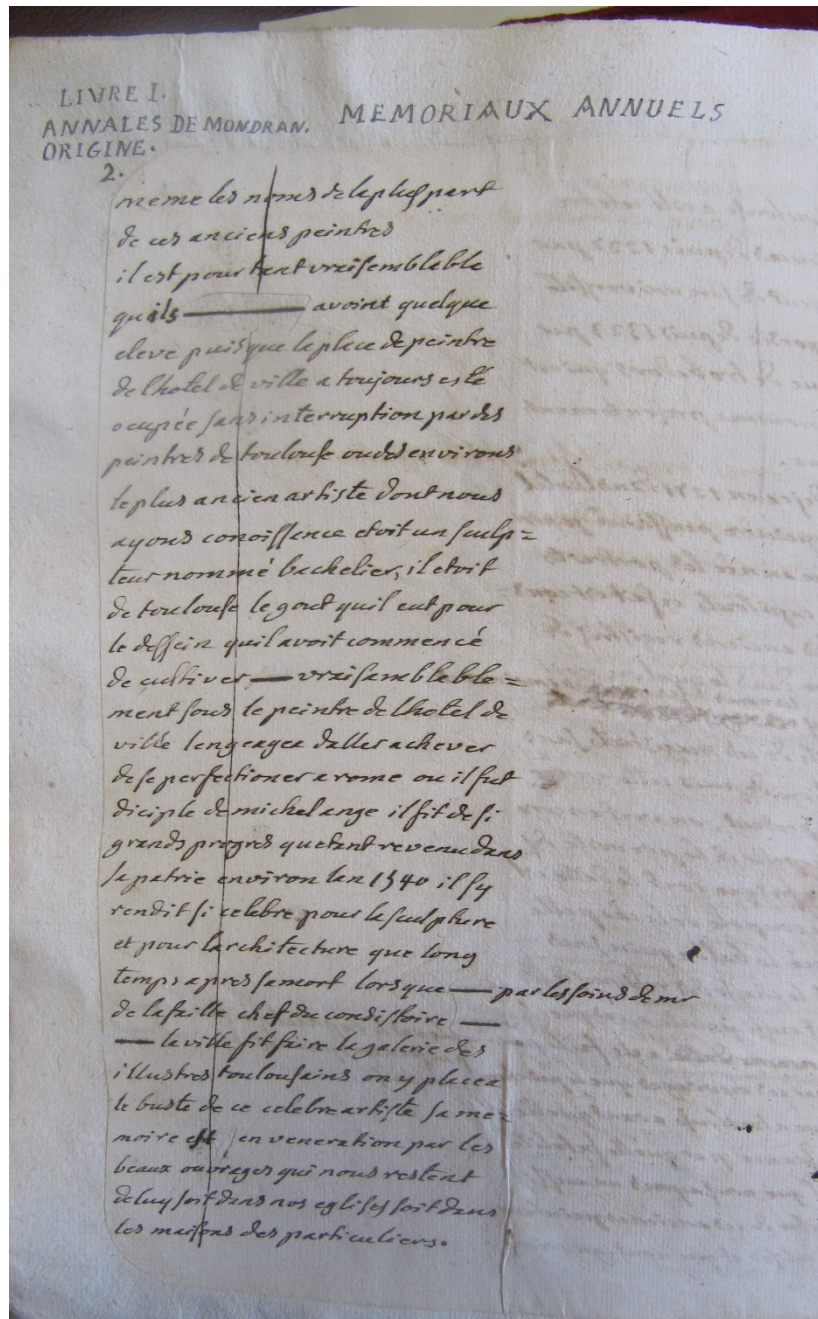 LIVRE I.
ANNALES DE MONDRAN. MEMORIAUX ANNUELS
ORIGINE.
2.
meme les noms de la plus part
de ces anciens peintres
il est pourtant vraisemblable
quils avoint quelque
eleve puisque la place de peintre
de lhotel de ville a toujours esté
occupée sans interruption par des
peintres de toulouse ou des environs
le plus ancien artiste dont nous
ayons conoissence etoit un sculp=
teur nommé bachelier, il etoit
de toulouse le gout quil eut pour
le dessein quil avoit commencé
de cultiver — vraisemblable=
ment sous le peintre de lhotel de
ville lengeagea daller achever
de se perfectioner a rome ou il fut
diciple de michel ange il fit de si
grands progres quetant revenu dans
sa patrie environ lan 1540 il sy
rendit si celebre pour la sculpture
et pour larchitecture que long
temps apres sa mort lorsque — par les soins de mr
de lafaille chef du consistoire —
— la ville fit faire la galerie des
illustres toulousains on y placea
le buste de ce celebre artiste sa me=
moire est en veneration par les
beaux ouvrages qui nous restent
de luy soit dans nos eglises soit dans
les maisons des particuliers.